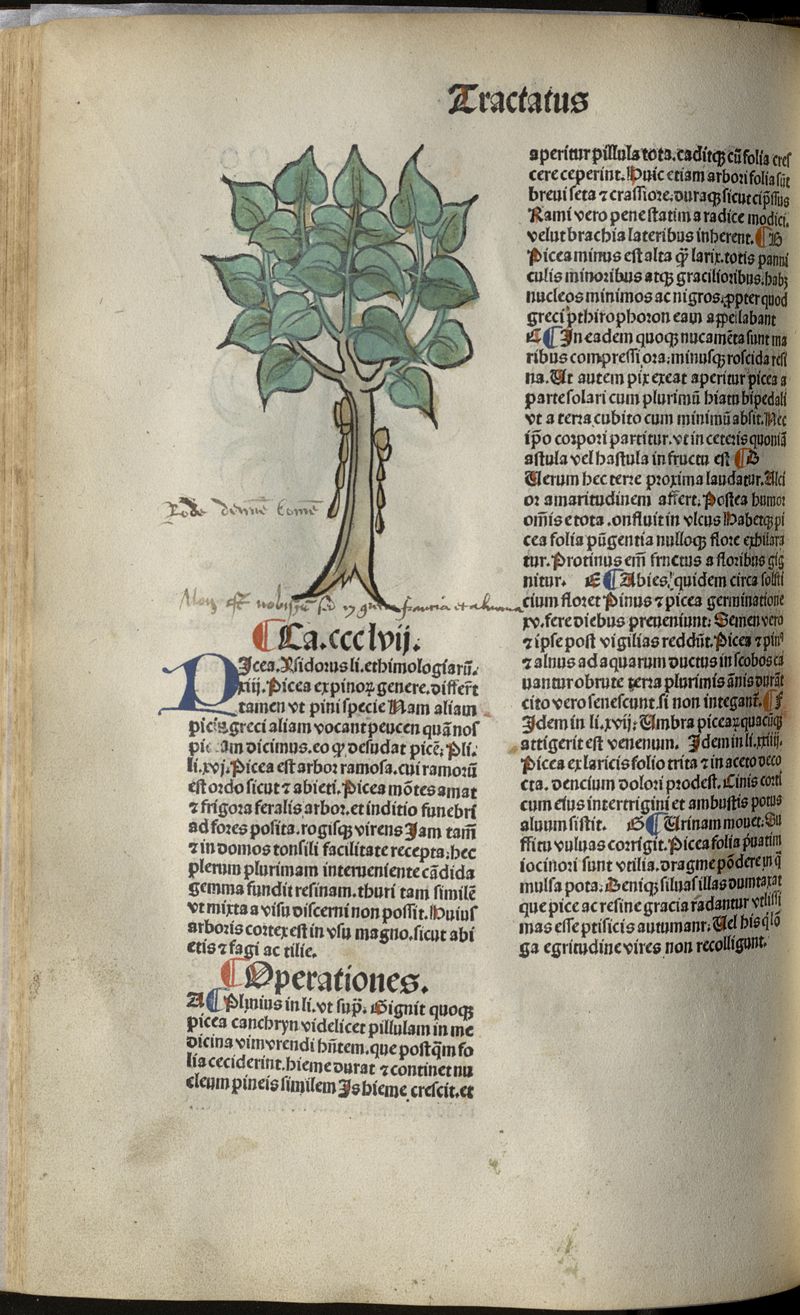 Tractatus
Ca.ccclvij.
PIcea. Ysidorus li. ethimologiaꝝ.
xiiij. Picea ex pinoꝝ genere. differt̄
tamen vt pini specie Nam aliam
greci aliam vocant peucen quā nos
am dicimus. eo ꝙ desudat picē. Pli.
li.xvj. Picea est arbor ramosa. cui ramoꝝ
est ordo sicut ⁊ abieti. Picea mōtes amat
⁊ frigora feralis arbor. et inditio funebri
ad fores posita. rogisqꝫ virens Jam tam̄
⁊ in domos tonsili facilitate recepta: hec
plerum plurimam interueniente cādida
gemma fundit resinam. thuri tam similē
vt mixta a visu discerni non possit. Huius
arboris cortex est in vsu magno. sicut abi
etis ⁊ fagi ac tilie.
Operationes.
A Plinius in li. vt sup̄. Gignit quoqꝫ
picea canchryn videlicet pillulam in me
dicina vim vrendi hn̄tem. que postq̄m fo
lia ceciderint. hieme durat ⁊ continet nu
cleum pineis similem Is hieme crescit. et
aperitur pillula tota. caditqꝫ cū folia cres
cere ceperint. Huic etiam arbori folia sūt
breui seta ⁊ crassiore. duraqꝫ sicut cip̄ssus
Rami vero pene statim a radice modici.
velut brachia lateribus inherent. B
Picea minus est alta q̄ larix. totis panni
culis minoribus atqꝫ gracilioribus: habꝫ
nucleos minimos ac nigros: ꝓpter quod
greci pthirophoron eam appellabant
C In eadem quoqꝫ nucamēta sunt ma
ribus compressiora: minusqꝫ roscida resi
na. Ut autem pix exeat aperitur picea a
parte solari cum plurimū hiatu bipedali
vt a terra cubito cum minimū absit. Nec
ip̄o corpori partitur. vt in ceteris quoniā
astula vel hastula in fructu est D
Uerum hec terre proxima laudatur. Alci
or amaritudinem affert. Postea humor
om̄is e tota .onfluit in vlcus Habetqꝫ pi
cea folia pūgentia nulloqꝫ flore exhilara
tur. Protinus em̄ fructus a floribus gig
nitur. E Abies quidem circa solsti
cium floret Pinus ⁊ picea germinatione
xv. fere diebus preueniunt: Semen vero
⁊ ipse post vigilias reddūt. Picea ⁊ pinꝰ
⁊ alnus ad aquarum ductus in scobos ca
uantur obrute terra plurimis ānis durāt
cito vero senescunt. si non integant̄. F
Idem in li. xvij: Umbra piceaꝝ quacūqꝫ
attigerit est venenum. Idem in li. xxiiij.
Picea ex laricis folio trita ⁊ in aceto deco
cta. dencium dolori prodest. Cinis corti
cum eius intertrigini et ambustis potus
aluum sistit. G Urinam mouet: Su
ffitu vuluas corrigit. Picea folia p̄uatim
iocinori sunt vtilia. dragme pōdere in q̄
mulsa pota: Deniqꝫ siluas illas dumtaxat
que pice ac resine gracia radantur vtilissi
mas esse ptisicis autumant. Uel his q̄ lō
ga egritudine vires non recolligunt.